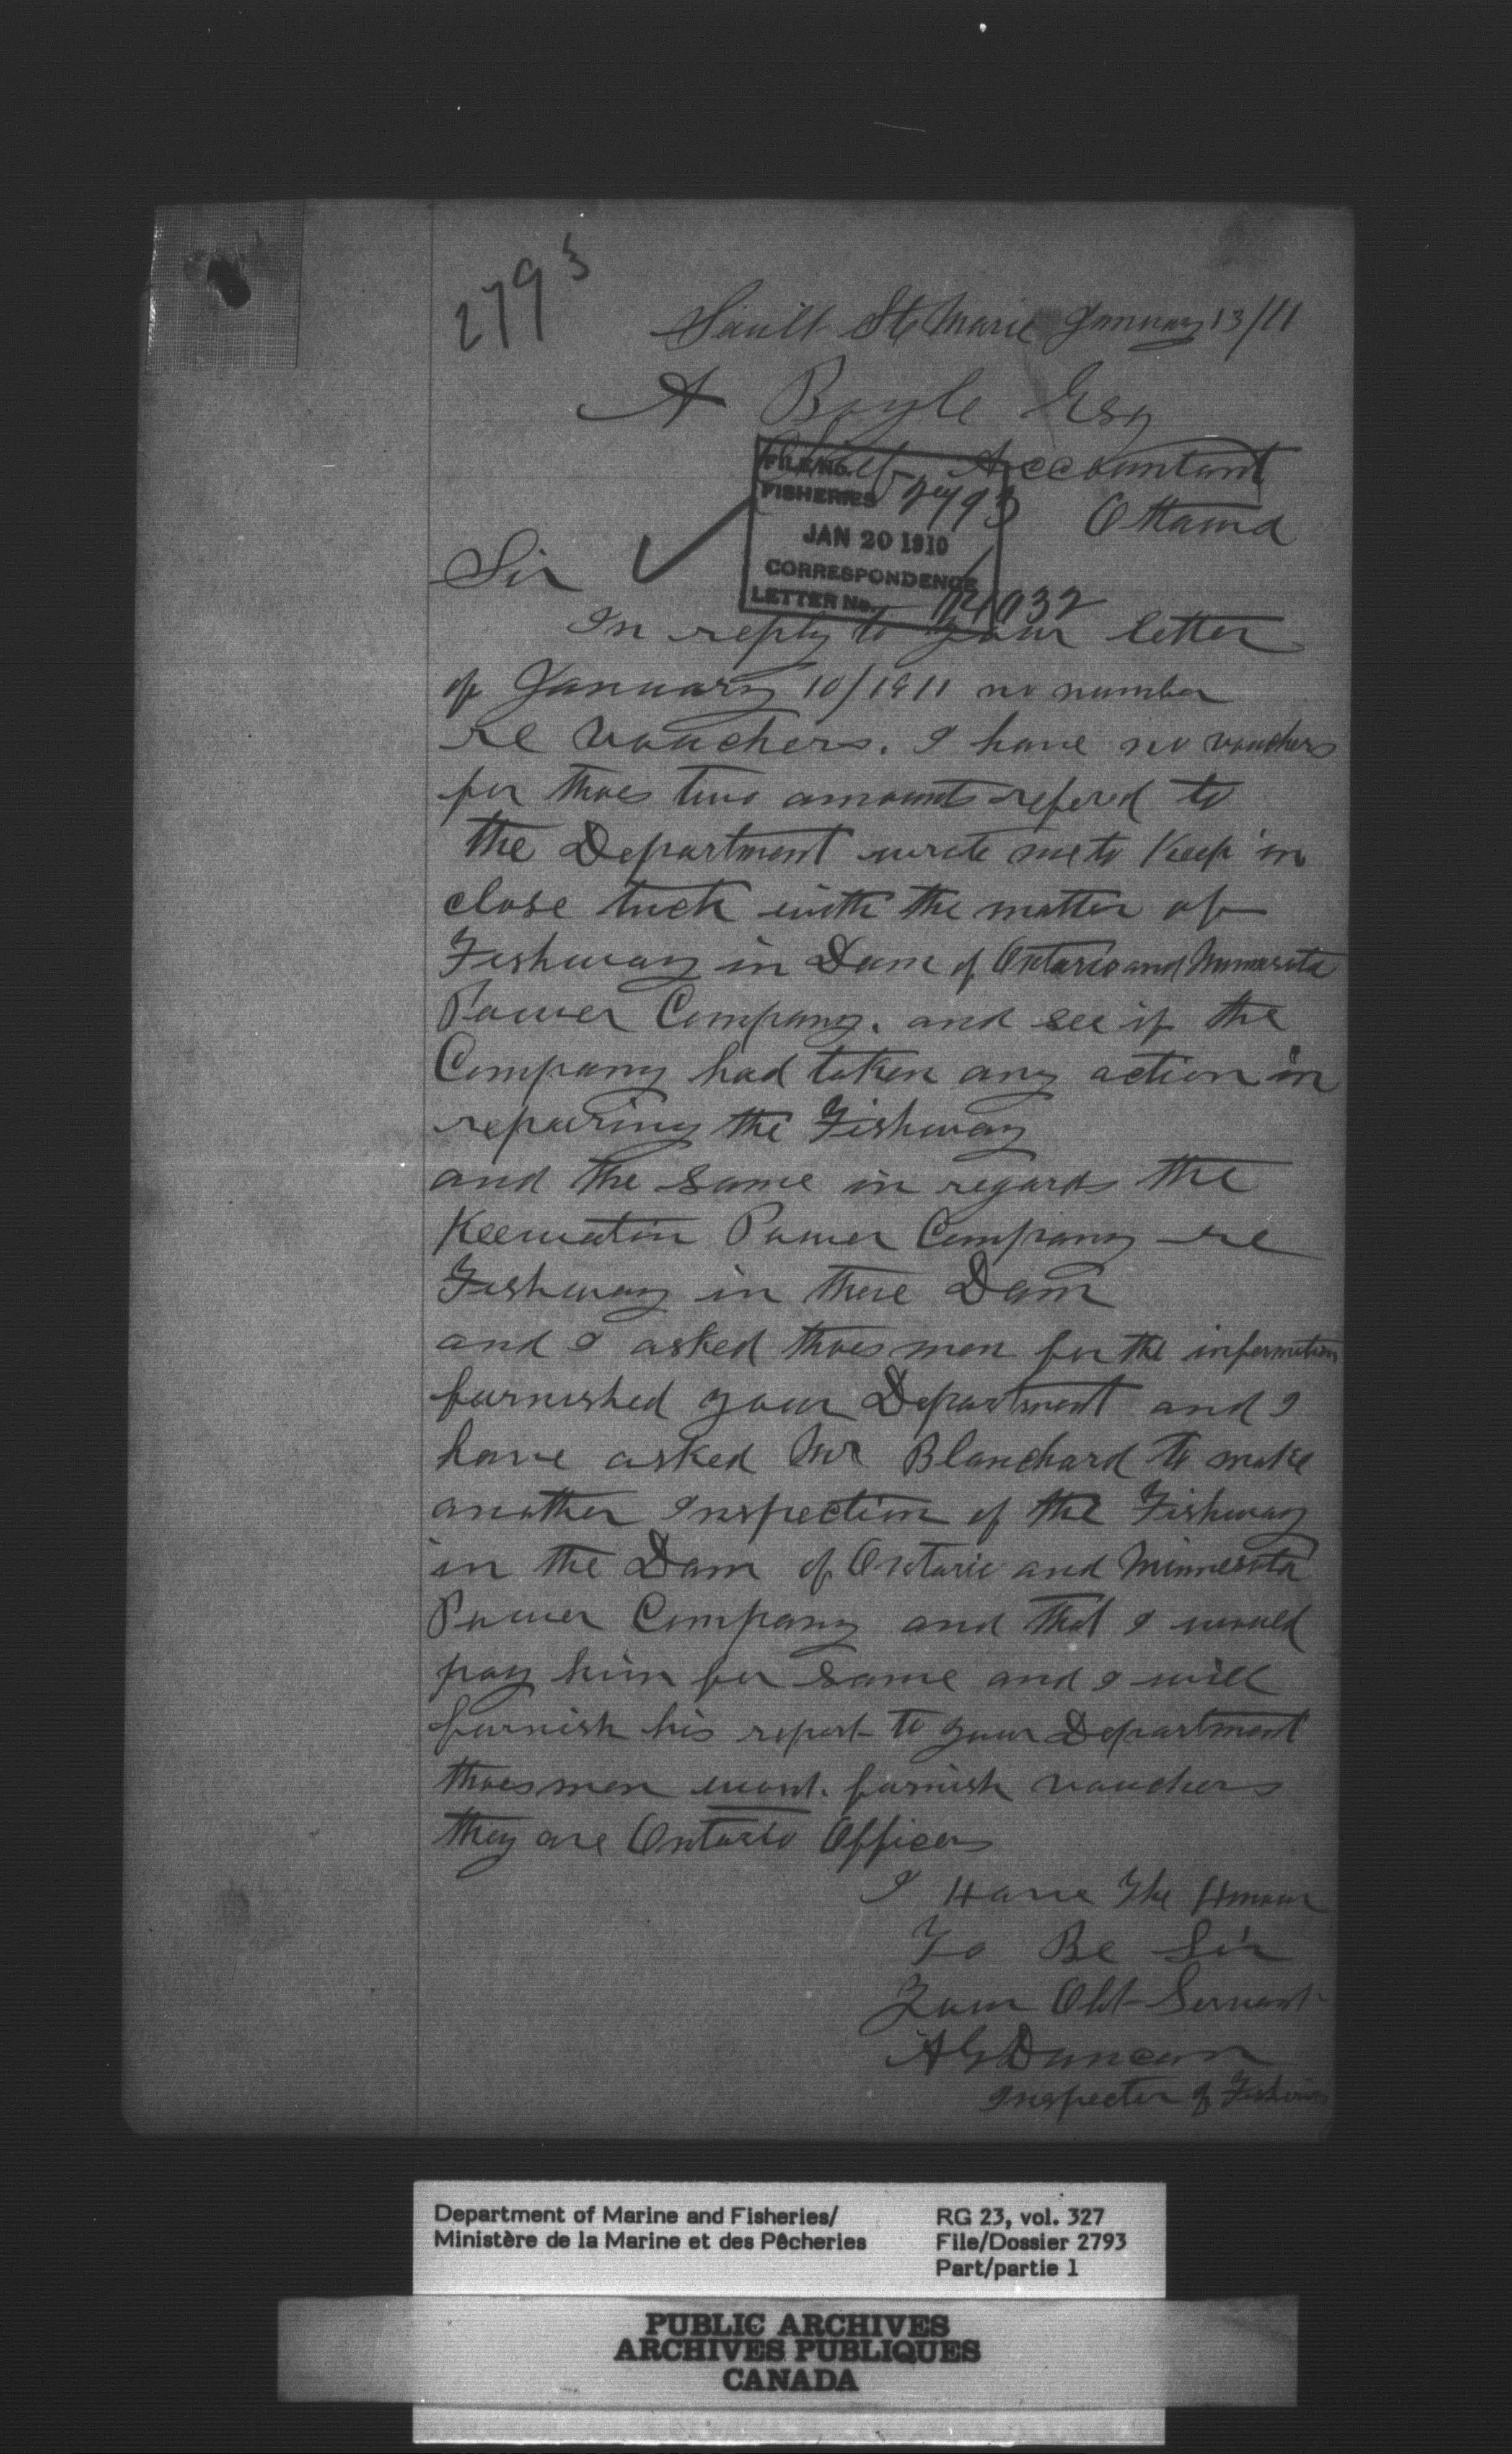 2793
Sault Ste Marie January 13/11
A Boyle Esq
Chief Accountant
Ottawa
FILE No.
FISHERIES 2793
JAN 20 1910
CORRESPONDENCE
LETTER No.
Sir
In reply to your letter
of January 10/1911 no number
re Vouchers. I have no vouchers
for thoes two amounts refered to
the Department wrote me to Keep in
close tuck with the matter of
Fishway in Dam of Ontario and Minnesota
Power Company. and see if the
Company had taken any action in
repairing the Fishway
and the same in regards the
Keewatin Power Company re
Fishway in there Dam
and I asked thoes men for the information
furnished your Department and I
have asked Mr Blanchard to make
another Inspection of the Fishway
in the Dam of Ontario and Minnesota
Power Company and that I would
pay him for same and I will
furnish his report to your Department
thoes men wont. furnish vouchers
they are Ontario Officers
I Have The Honour
To Be Sir
Your Obt Servant
A G Duncan
Inspector of Fisheries
Department of Marine and Fisheries/
Ministère de la Marine et des Pêcheries
RG 23, vol. 327
File/Dossier 2793
Part/partie 1
PUBLIC ARCHIVES
ARCHIVES PUBLIQUES
CANADA